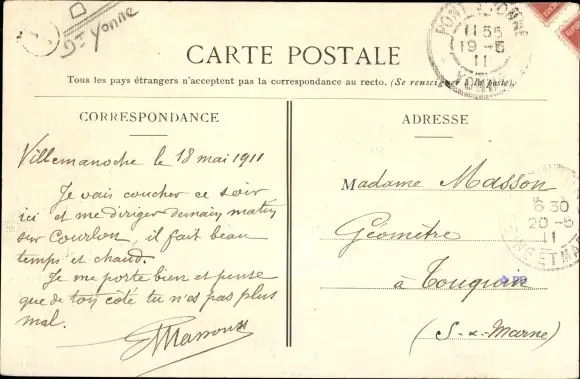 Dt Yonne
CARTE POSTALE
Tous les pays étrangers n'acceptent pas la correspondance au recto. (Se renseigner à la poste).
CORRESPONDANCE
Villemanoche le 18 mai 1911
Je vais coucher ce soir
ici et me diriger demain matin
sur Courlon, il fait beau
temps et chaud.
Je me porte bien et pense
que de ton côté tu n'es pas plus
mal.
EMasson
PONT S YONNE
11 55
19 -5
11
YONNE
ADRESSE
Madame Masson
Géomètre
à Touquin
(S-&-Marne)
6 30
20 -5
11
ET MA